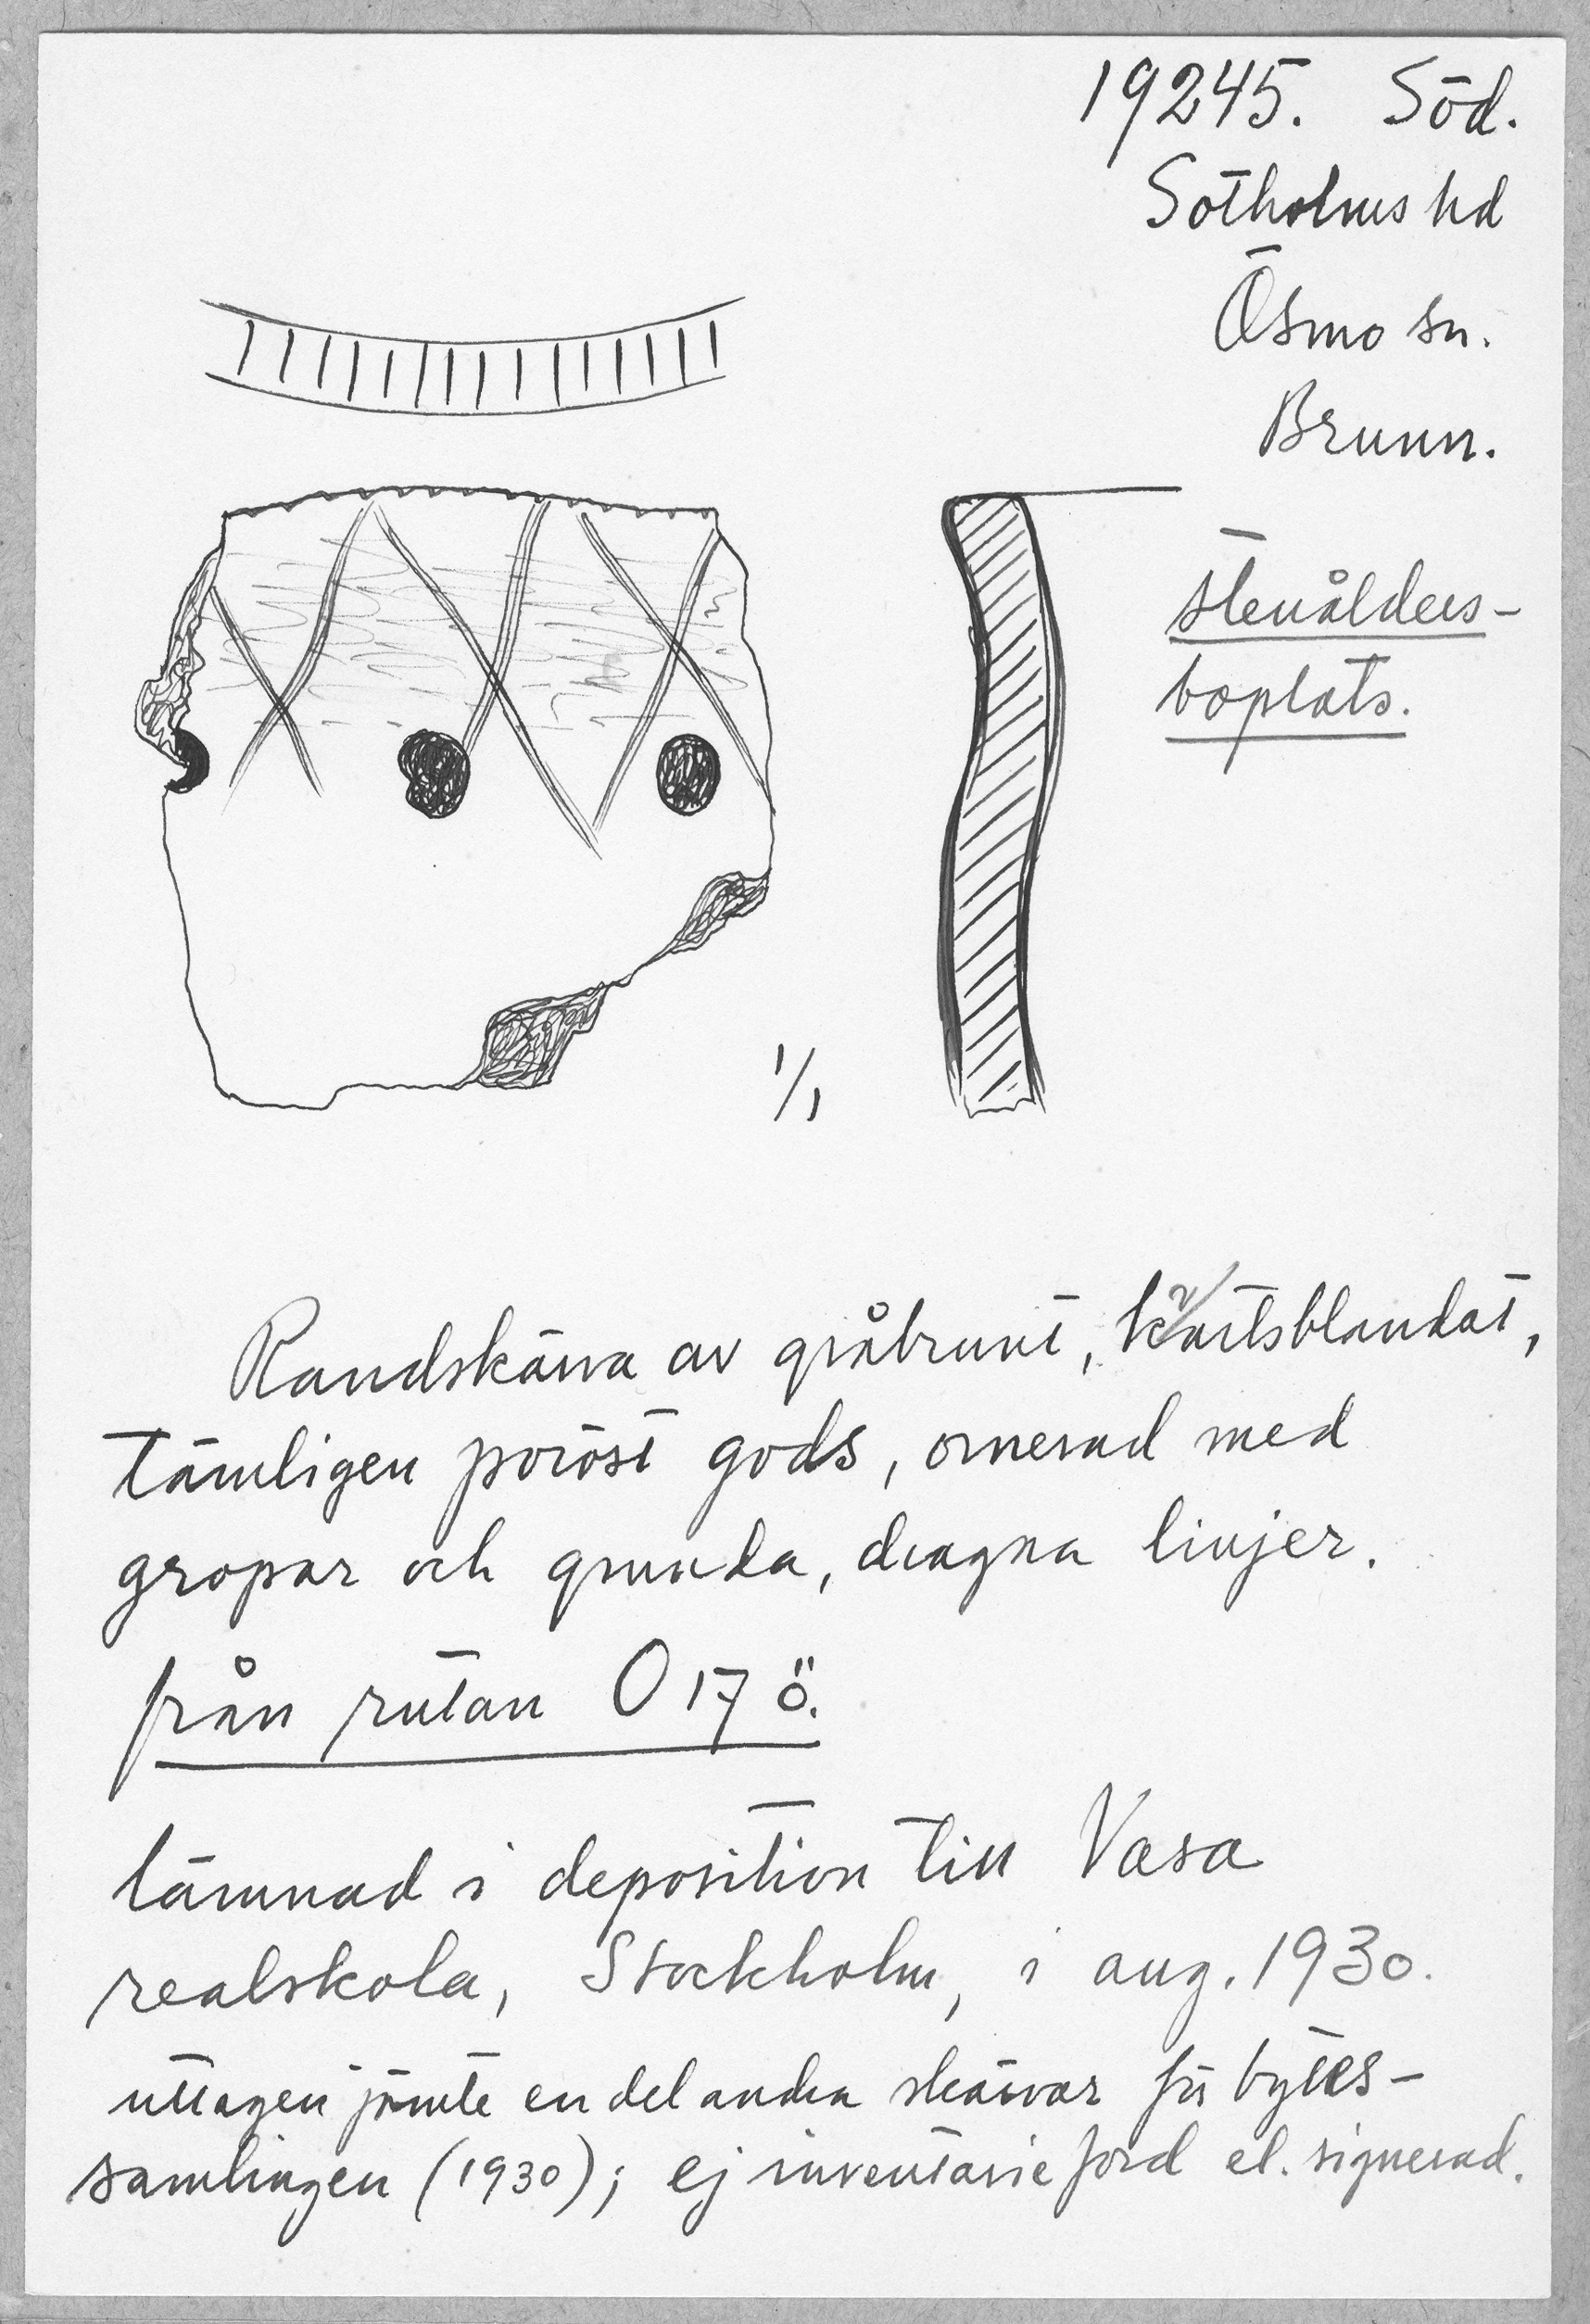 19245. Söd.
Sotholms hd
Ösmo sn.
Brunn.
stenålders-
boplats.
1/1
Randskärva av gråbrunt, kvartsblandat,
tämligen poröst gods, ornerad med
gropar och grunda, dragna linjer.
från rutan O 17 ö.
lämnad i deposition till Vasa
realskola, Stockholm, i aug. 1930.
uttagen jämte en del andra skärvor för bytes-
samlingen (1930); ej inventarieförd el. signerad.